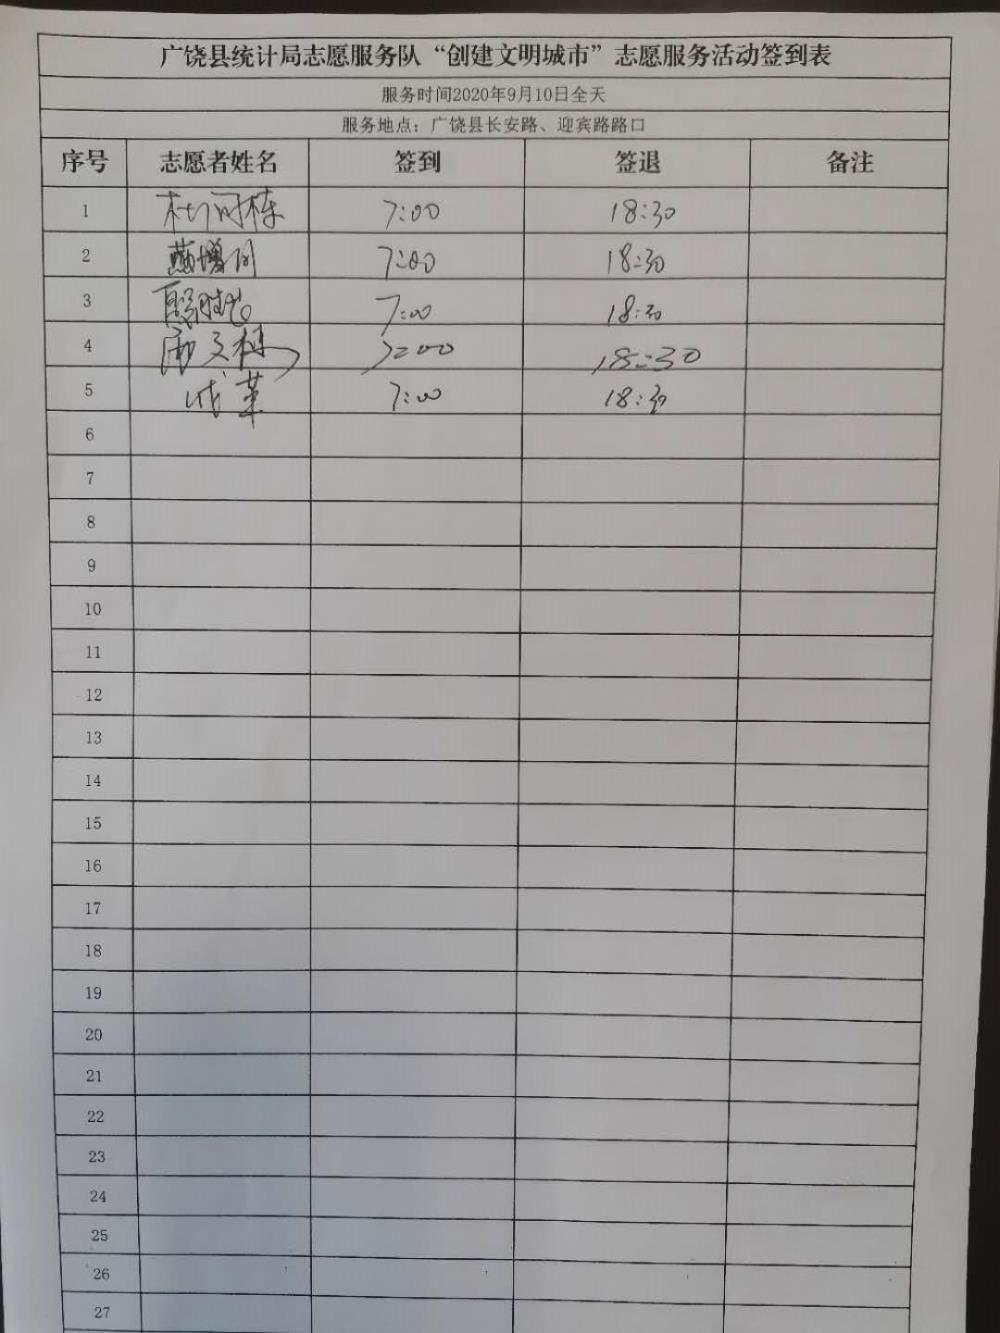 广饶县统计局志愿服务队“创建文明城市”志愿服务活动签到表
服务时间2020年9月10日全天
服务地点：广饶县长安路、迎宾路路口
序号 志愿者姓名 签到 签退 备注
1 7:00 18:30
2 7:00 18:30
3 7:00 18:30
4 7:00 18:30
5 成革 7:00 18:30
6
7
8
9
10
11
12
13
14
15
16
17
18
19
20
21
22
23
24
25
26
27